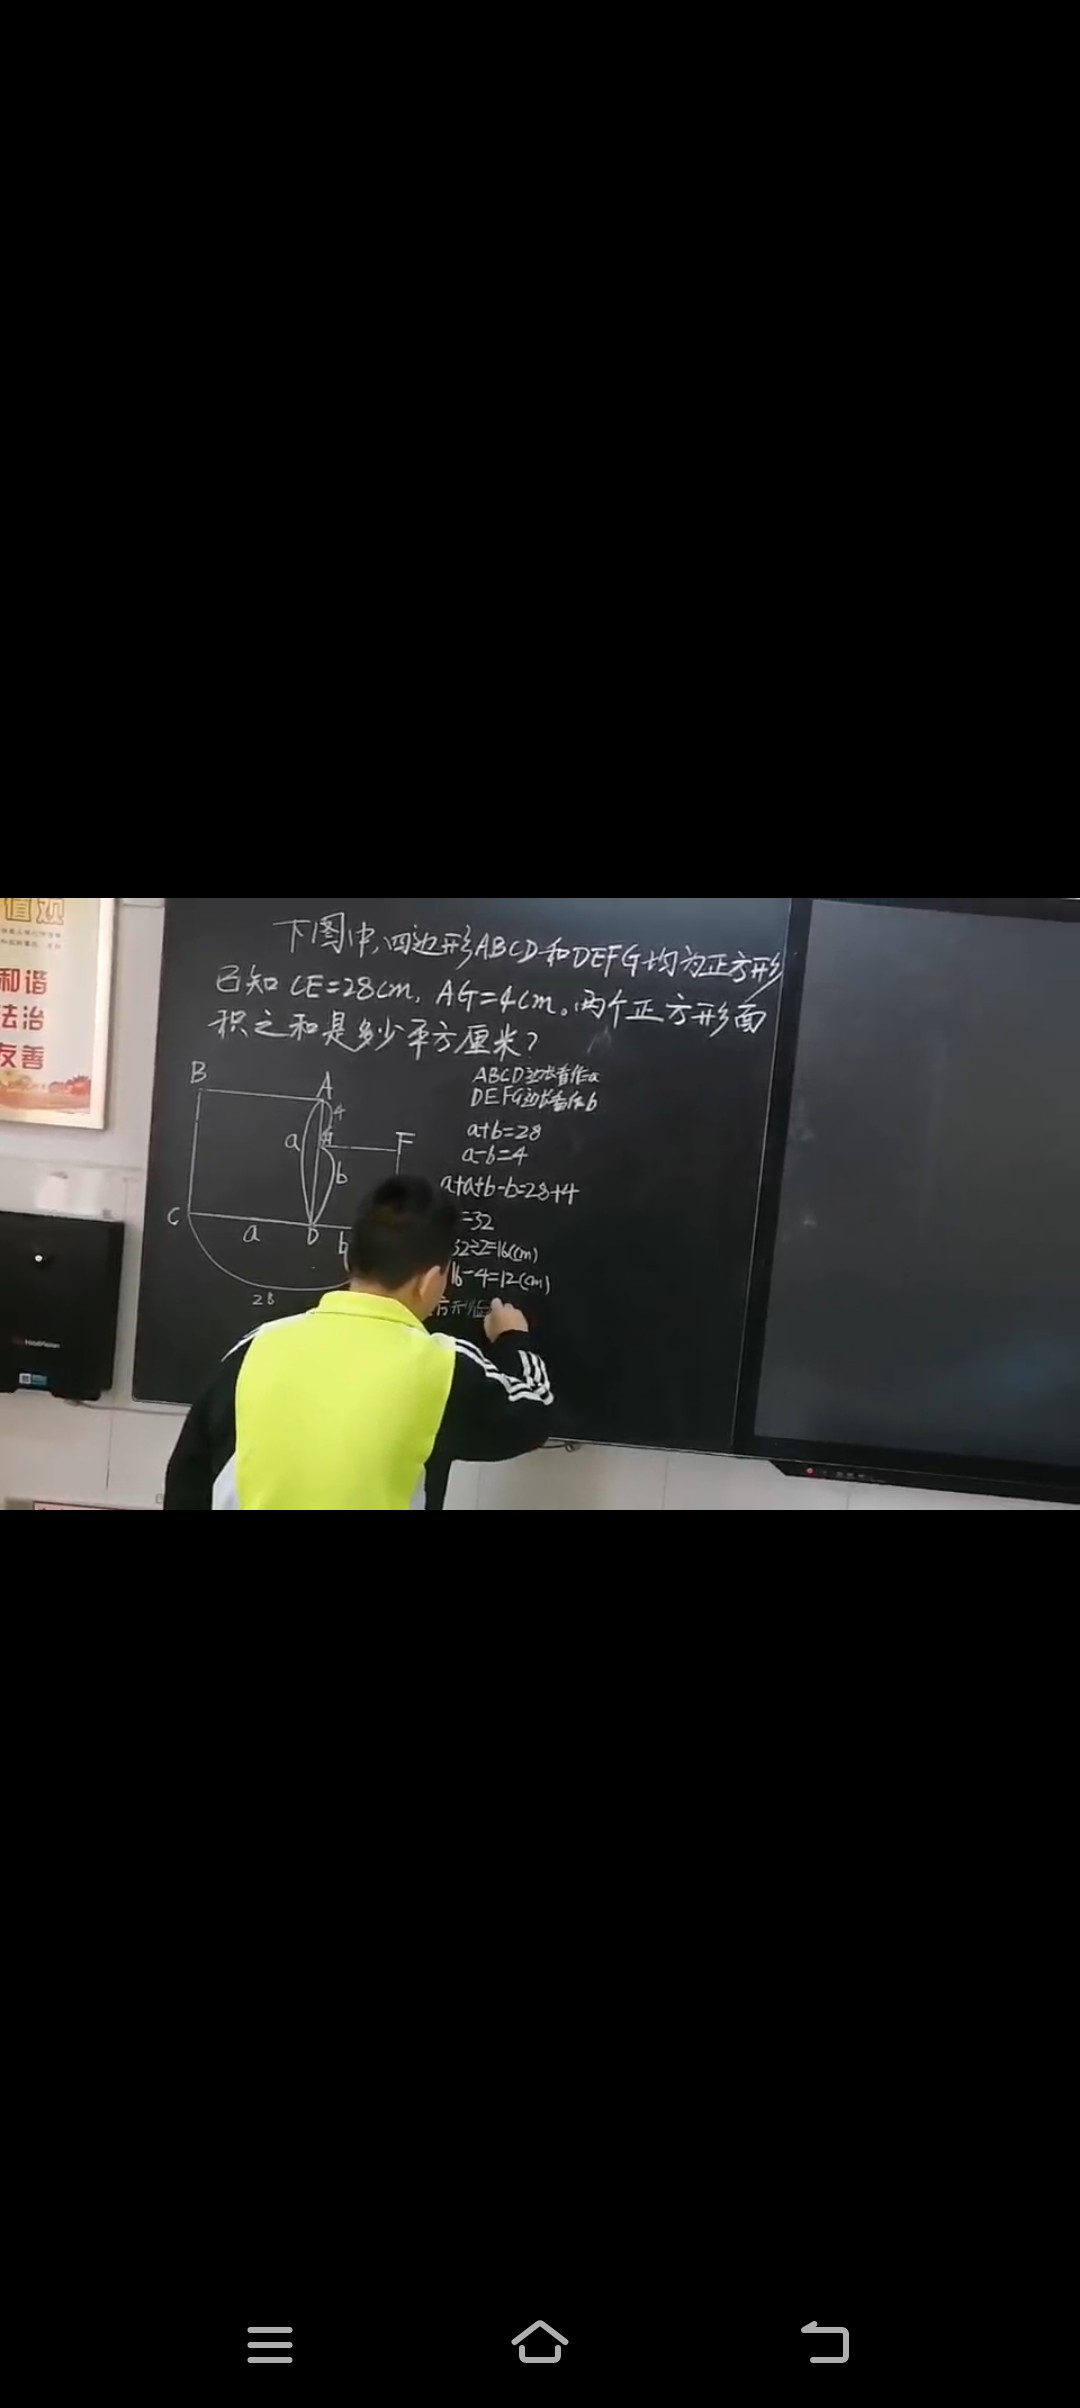 值观
和谐
法治
友善
下图中,四边形ABCD和DEFG均为正方形
已知CE=28cm, AG=4cm。两个正方形面
积之和是多少平方厘米?
B
A
4
a
G
F
b
C
a
D
b
28
ABCD边长看作a
DEFG边长看作b
a+b=28
a-b=4
a+a+b-b=28+4
=32
32÷2=16(cm)
16-4=12(cm)
方形